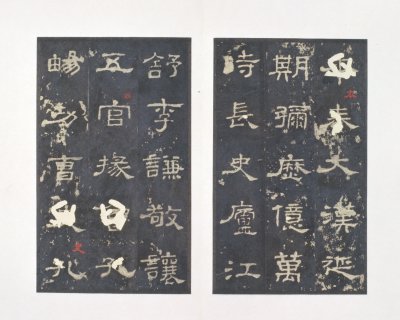 大漢延
期彌歷億萬
時長史廬江
舒李謙敬讓
五官掾魯孔
暢功曹史孔